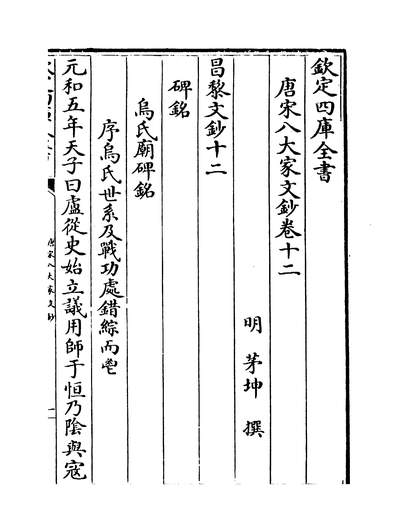 欽定四庫全書
唐宋八大家文鈔卷十二
明 茅坤 撰
昌黎文鈔十二
碑銘
烏氏廟碑銘
序烏氏世系及戰功處錯綜而鬯
元和五年天子曰盧從史始立議用師于恒乃陰與寇
唐宋八大家文鈔
一